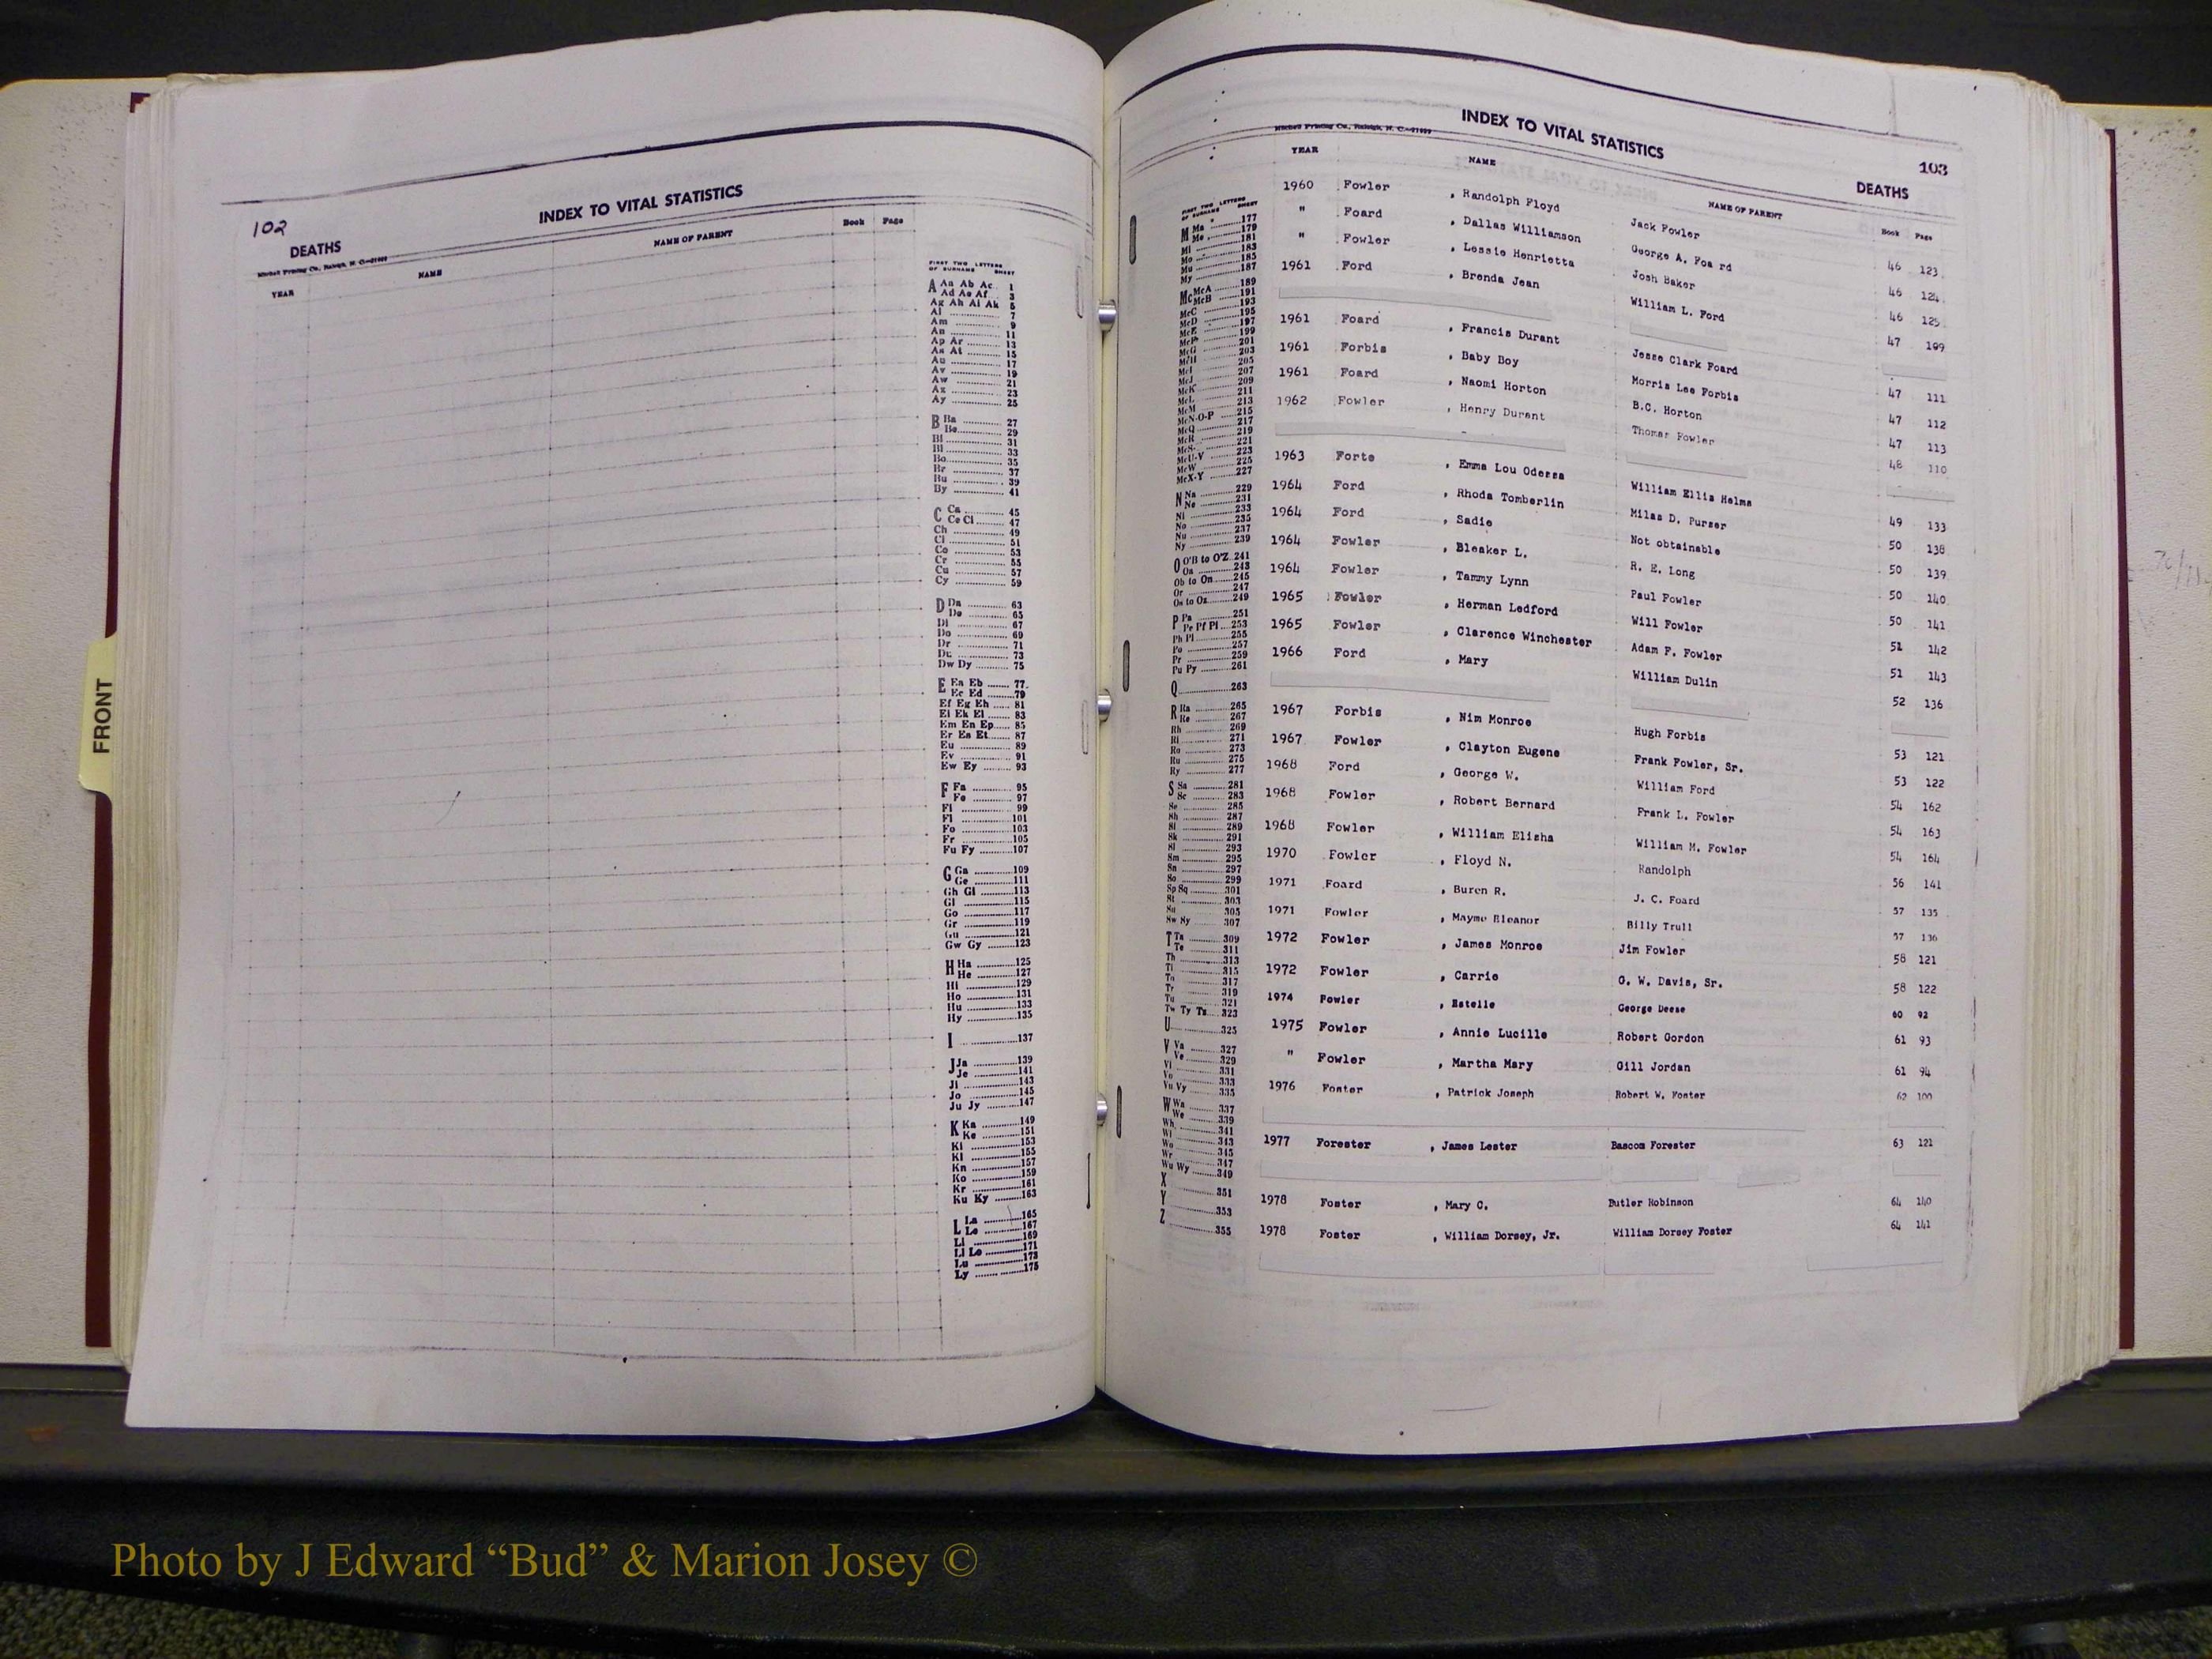 102
INDEX TO VITAL STATISTICS
DEATHS
Mitchell Printing Co., Raleigh, N. C.
YEAR NAME NAME OF PARENT Book Page
FIRST TWO LETTERS OF SURNAME SHEET
A Aa Ab Ac 1
Ad Ae Af 3
Ag Ah Ai Ak 5
Al 7
Am 9
An 11
Ap Ar 13
As At 15
Au 17
Av 19
Aw 21
Ax 23
Ay 25
B Ba 27
Be 29
Bi 31
Bl 33
Bo 35
Br 37
Bu 39
By 41
C Ca 45
Ce Ci 47
Ch 49
Cl 51
Co 53
Cr 55
Cu 57
Cy 59
D Da 63
De 65
Di 67
Do 69
Dr 71
Du 73
Dw Dy 75
E Ea Eb 77
Ec Ed 79
Ef Eg Eh 81
Ei Ek El 83
Em En Ep 85
Er Es Et 87
Eu 89
Ev 91
Ew Ey 93
F Fa 95
Fe 97
Fi 99
Fl 101
Fo 103
Fr 105
Fu Fy 107
G Ga 109
Ge 111
Gh Gi 113
Gl 115
Go 117
Gr 119
Gu 121
Gw Gy 123
H Ha 125
He 127
Hi 129
Ho 131
Hu 133
Hy 135
I 137
J Ja 139
Je 141
Ji 143
Jo 145
Ju Jy 147
K Ka 149
Ke 151
Ki 153
Kl 155
Kn 157
Ko 159
Kr 161
Ku Ky 163
L La 165
Le 167
Li 169
Ll Lo 171
Lu 173
Ly 175
FRONT
INDEX TO VITAL STATISTICS
103
Mitchell Printing Co., Raleigh, N. C.
DEATHS
YEAR NAME NAME OF PARENT Book Page
FIRST TWO LETTERS OF SURNAME SHEET
M Ma 177
Me 179
Mi 181
Mo 183
Mu 185
My 187
Mc McA 189
McB 191
McC 193
McD 195
McE 197
McF 199
McG 201
McH 203
McI 205
McJ 207
McK 209
McL 211
McM 213
McN-O-P 215
McQ 217
McR 219
McS 221
McU-V 223
McW 225
McX-Y 227
N Na 229
Ne 231
Ni 233
No 235
Nu 237
Ny 239
O O'B to O'Z 241
Oa 243
Ob to On 245
Or 247
Os to Oz 249
P Pa 251
Pe Pf Pi 253
Ph Pl 255
Po 257
Pr 259
Pu Py 261
Q 263
R Ra 265
Re 267
Rh 269
Ri 271
Ro 273
Ru 275
Ry 277
S Sa 281
Sc 283
Se 285
Sh 287
Si 289
Sk 291
Sl 293
Sm 295
Sn 297
So 299
Sp Sq 301
St 303
Su 305
Sw Sy 307
T Ta 309
Te 311
Th 313
Ti 315
To 317
Tr 319
Tu 321
Tw Ty Tz 323
U 325
V Va 327
Ve 329
Vi 331
Vo 333
Vu Vy 335
W Wa 337
We 339
Wh 341
Wi 343
Wo 345
Wr 347
Wu Wy 349
X 351
Y 353
Z 355
1960 Fowler , Randolph Floyd Jack Fowler 46 123
" Foard , Dallas Williamson George A. Foa rd 46 124
" Fowler , Lessie Henrietta Josh Baker 46 125
1961 Ford , Brenda Jean William L. Ford 47 109
1961 Foard , Francis Durant Jesse Clark Foard 47 111
1961 Forbis , Baby Boy Morris Lee Forbis 47 112
1961 Foard , Naomi Horton B.C. Horton 47 113
1962 Fowler , Henry Durant Thomas Fowler 48 110
1963 Forte , Emma Lou Odessa William Ellis Helms 49 133
1964 Ford , Rhoda Tomberlin Milas D. Purser 50 138
1964 Ford , Sadie Not obtainable 50 139
1964 Fowler , Bleaker L. R. E. Long 50 140
1964 Fowler , Tammy Lynn Paul Fowler 50 141
1965 Fowler , Herman Ledford Will Fowler 51 142
1965 Fowler , Clarence Winchester Adam F. Fowler 51 143
1966 Ford , Mary William Dulin 52 136
1967 Forbis , Nim Monroe Hugh Forbis 53 121
1967 Fowler , Clayton Eugene Frank Fowler, Sr. 53 122
1968 Ford , George W. William Ford 54 162
1968 Fowler , Robert Bernard Frank L. Fowler 54 163
1968 Fowler , William Elisha William M. Fowler 54 164
1970 Fowler , Floyd N. Randolph 56 141
1971 Foard , Buren R. J. C. Foard 57 135
1971 Fowler , Mayme Eleanor Billy Trull 57 136
1972 Fowler , James Monroe Jim Fowler 58 121
1972 Fowler , Carrie G. W. Davis, Sr. 58 122
1974 Fowler , Estelle George Deese 60 92
1975 Fowler , Annie Lucille Robert Gordon 61 93
" Fowler , Martha Mary Gill Jordan 61 94
1976 Foster , Patrick Joseph Robert W. Foster 62 100
1977 Forester , James Lester Bascom Forester 63 121
1978 Foster , Mary C. Butler Robinson 64 140
1978 Foster , William Dorsey, Jr. William Dorsey Foster 64 141
Photo by J Edward “Bud” & Marion Josey ©